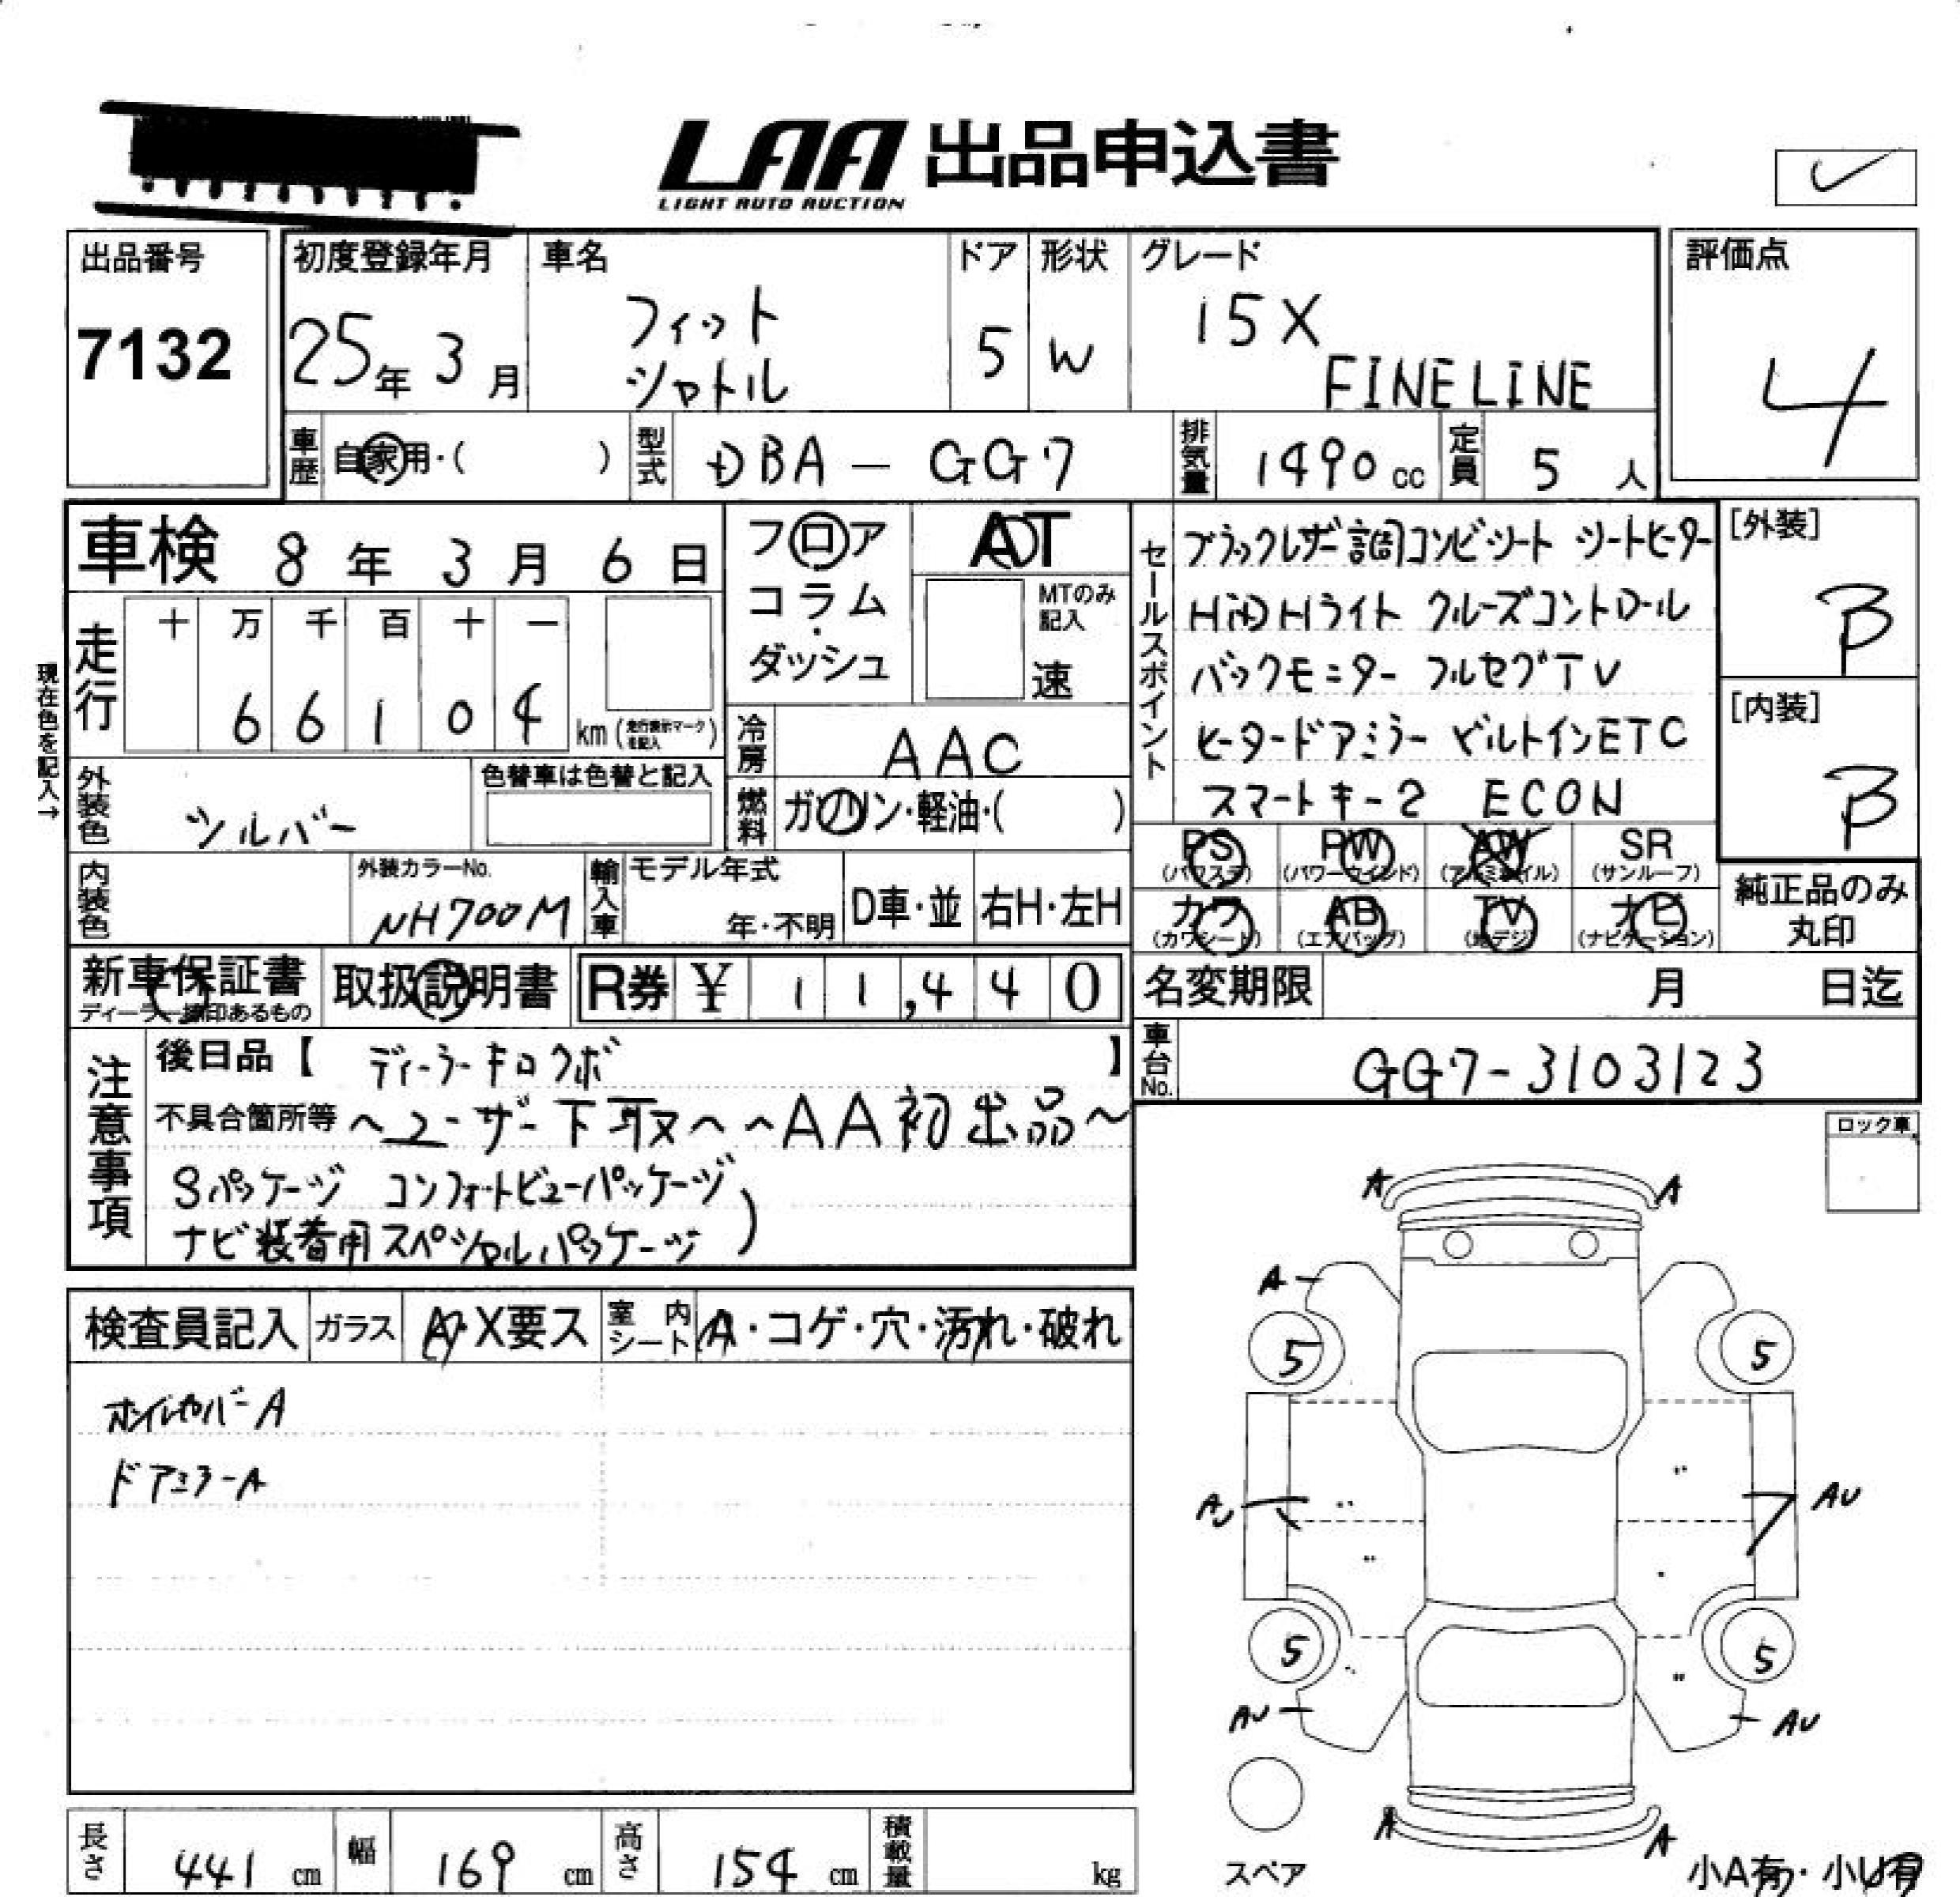 LAA 出品申込書
LIGHT AUTO AUCTION
出品番号
7132
初度登録年月
25年 3月
車名
フィット
シャトル
ドア
5
形状
W
グレード
15X
FINE LINE
評価点
4
車歴 自家用・( )
型式 DBA-GG7
排気量 1490 cc
定員 5 人
車検 8年 3月 6日
フロア
コラム
・
ダッシュ
AT
MTのみ
記入
速
走行
十 万 千 百 十 一
6 6 1 0 4 km (走行表示マークを記入)
現在色を記入→
冷房 AAC
外装色 シルバー
色替車は色替と記入
燃料 ガソリン・軽油・( )
セールスポイント
ブラックレザー調コンビシート シートヒーター
HID Hライト クルーズコントロール
バックモニター フルセグTV
ヒータードアミラー ビルトインETC
スマートキー2 ECON
[外装]
B
[内装]
B
PS
(パワステ)
PW
(パワーウインド)
AW
(アルミホイル)
SR
(サンルーフ)
カワ
(カワシート)
AB
(エアバッグ)
TV
(地デジ)
ナビ
(ナビゲーション)
純正品のみ
丸印
内装色
外装カラーNo.
NH700M
輸入車
モデル年式
年・不明
D車・並
右H・左H
新車保証書
ディーラー捺印あるもの
取扱説明書
R券 ¥ 11,440
名変期限 月 日迄
車台No. GG7-3103123
注意事項
後日品【 ディーラーキロクボ 】
不具合箇所等 ~ユーザー下取~ ~AA初出品~
Sパッケージ コンフォートビューパッケージ
ナビ装着用スペシャルパッケージ)
ロック車
検査員記入
ガラス A・X要ス
室内シート A・コゲ・穴・汚れ・破れ
ホイルカバーA
ドアミラーA
A A
A
5 5
AU AU
5 5
AU AU
A A
スペア
小A有・小U有
長さ 441 cm
幅 169 cm
高さ 154 cm
積載量 kg